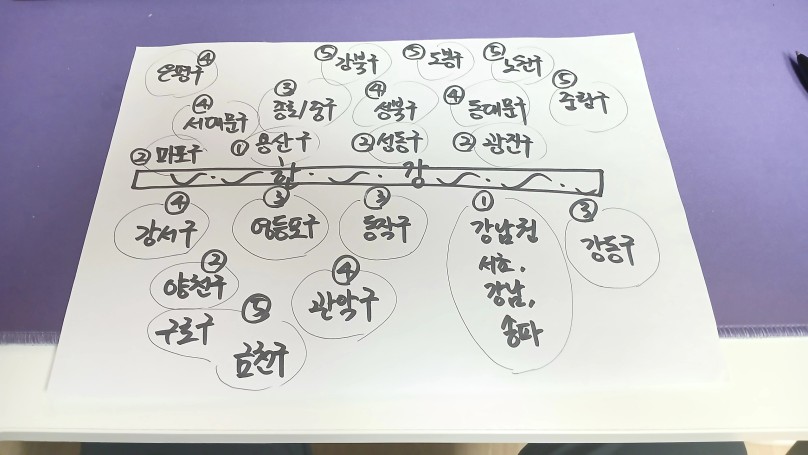 ④ 은평구
⑤ 강북구
⑤ 도봉구
⑤ 노원구
⑤ 중랑구
④ 서대문구
③ 종로/중구
④ 성북구
④ 동대문구
② 마포구
① 용산구
② 성동구
② 광진구
한 강
④ 강서구
③ 영등포구
③ 동작구
① 강남권
서초,
강남,
송파
③ 강동구
② 양천구
④ 관악구
구로구
⑤ 금천구